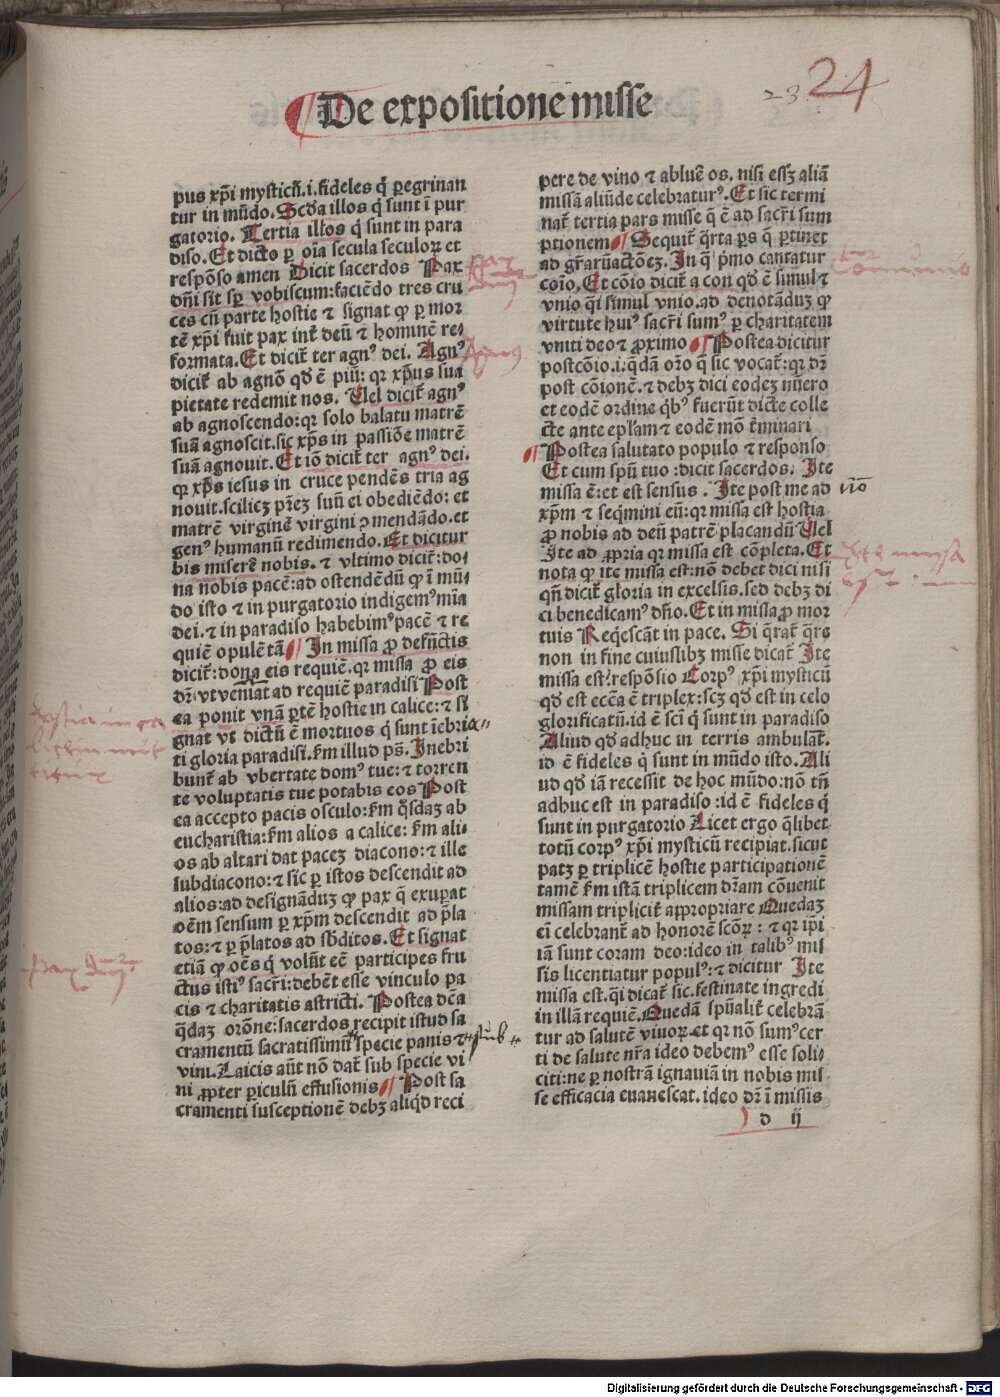 De expositione misse
23 24
pus xp̄i mysticū .i. fideles q̇ peregrinan
tur in mūdo. Scd̄a illos q̇ sunt ī pur
gatorio. Tertia illos q̇ sunt in para
diso. Et dicto ꝑ oīa secula seculoꝝ et
respōso amen Dicit sacerdos Pax
dn̄i sit sꝑ vobiscum: faciēdo tres cru
ces cū parte hostie ⁊ signat ꝙ ꝑ mor
tē xp̄i fuit pax int̄ deū ⁊ hominē re⸗
formata. Et dicit̄ ter agnꝰ dei. Agnꝰ
dicit̄ ab agnō qd̄ ē piū: qꝛ xp̄us sua
pietate redemit nos. Uel dicit̄ agnꝰ
ab agnoscendo: qꝛ solo balatu matrē
suā agnoscit. sic xp̄s in passiōe matrē
suā agnouit. Et iō dicit̄ ter agnꝰ dei.
qꝛ xp̄s iesus in cruce pendēs tria ag
nouit. scilicꝫ pr̄eꝫ suū ei obediēdo: et
matrē virginē virgini ↄmendādo. et
genꝰ humanū redimendo. Et dicitur
bis miserē nobis. ⁊ vltimo dicit̄: do⸗
na nobis pacē: ad ostendēdū ꝙ ī mū⸗
do isto ⁊ in purgatorio indigemꝰ mīa
dei. ⁊ in paradiso habebimꝰ pacē ⁊ re
quiē opulētā ¶ In missa ꝓ defūctis
dicit̄: dona eis requiē. qꝛ missa ꝓ eis
dr̄. vt veniat ad requiē paradisi Post
ea ponit vnā ꝑtē hostie in calice: ⁊ si
gnat vt dictū ē mortuos q̇ sunt īebria
ti gloria paradisi. ẜm illud ps̄. Inebri
bunt̄ ab vbertate domꝰ tue: ⁊ torren
te voluptatis tue potabis eos Post
ea accepto pacis osculo: ẜm q̇sdaꝫ ab
eucharistia: ẜm alios a calice: ẜm ali⸗
os ab altari dat paceꝫ diacono: ⁊ ille
subdiacono: ⁊ sic ꝑ istos descendit ad
alios: ad designāduꝫ ꝙ pax q̄ exuꝑat
oēm sensum ꝑ xp̄m descendit ad p̄la
tos: ⁊ ꝑ p̄latos ad sb̄ditos. Et signat
etiā ꝙ oēs q̇ volūt eē participes fru
ctus istiꝰ sacr̄i: debēt esse vinculo pa
cis ⁊ charitatis astricti. Postea dc̄a
q̄daꝫ orōne: sacerdos recipit istud sa
cramentū sacratissimū specie panis ⁊ sub
vini. Laicis aūt nō dat̄ sub specie vi
ni ꝓpter periculū effusionis ¶ Post sa
cramenti susceptionē debꝫ aliq̇d reci
pere de vino ⁊ abluē os. nisi essꝫ aliā
missā aliūde celebraturꝰ. Et sic termi
nat̄ tertia pars misse q̄ ē ad sacr̄i sum
ptionem ¶ Sequit̄ q̄rta ꝑs q̄ ꝑtinet
ad gr̄aꝝactōeꝫ. In q̄ p̄mo cantatur
coīo. Et cōio dicit̄ a con qd̄ ē simul ⁊
vnio q̄si simul vnio. ad denotāduꝫ ꝙ
virtute huiꝰ sacr̄i sumꝰ ꝑ charitatem
vniti deo ⁊ ꝓximo ¶ Postea dicitur
postcōio. i. q̄dā or̄o q̄ sic vocat̄: qꝛ dr̄
post cōionē. ⁊ debꝫ dici eodeꝫ nūero
et eodē ordine q̇bꝰ fuerūt dicte colle
cte ante ep̄lam ⁊ eodē mō t̄minari
¶ Postea salutato populo ⁊ responso
Et cum spū tuo: dicit sacerdos. Ite
missa ē: et est sensus. Ite post me ad
xp̄m ⁊ seq̄mini eū: qꝛ missa est hostia
ꝓ nobis ad deū patrē placandū Uel
Ite ad ꝓpria qꝛ missa est cōpleta. Et
nota ꝙ ite missa est: nō debet dici nisi
qn̄ dicit̄ gloria in excelsis. sed debꝫ di
ci benedicamꝰ dn̄o. Et in missa ꝓ mor
tuis Req̇escāt in pace. Si q̄rat̄ q̄re
non in fine cuiuslibꝫ misse dicat̄ Ite
missa est? respōsio Corpꝰ xp̄i mysticū
qd̄ est ecc̄a ē triplex: scꝫ qd̄ est in celo
glorificatū. id ē sc̄i q̇ sunt in paradiso
Aliud qd̄ adhuc in terris ambulat̄.
id ē fideles q̇ sunt in mūdo isto. Ali
ud qd̄ iā recessit de hoc mūdo: nō tn̄
adhuc est in paradiso: id ē fideles q̇
sunt in purgatorio Licet ergo q̄libet
totū corpꝰ xp̄i mysticū recipiat. sicut
patꝫ ꝑ triplicē hostie participationē
tamē ẜm istā triplicem dr̄am cōuenit
missam triplicit̄ appropriare Quedaꝫ
ei celebrant̄ ad honorē scōꝝ: ⁊ qꝛ ip̄i
iā sunt coram deo: ideo in talibꝰ mis
sis licentiatur populꝰ: ⁊ dicitur Ite
missa est. q̄si dicat̄ sic. festinate ingredi
in illā requiē. Quedā spūalit̄ celebrā
tur ad salutē viuoꝝ. et qꝛ nō sumꝰ cer
ti de salute nr̄a ideo debemꝰ esse soli⸗
citi: ne ꝑ nostrā ignauiā in nobis mis
se efficacia euanescat. ideo dr̄ ī missis
d ij
Digitalisierung gefördert durch die Deutsche Forschungsgemeinschaft - DFG